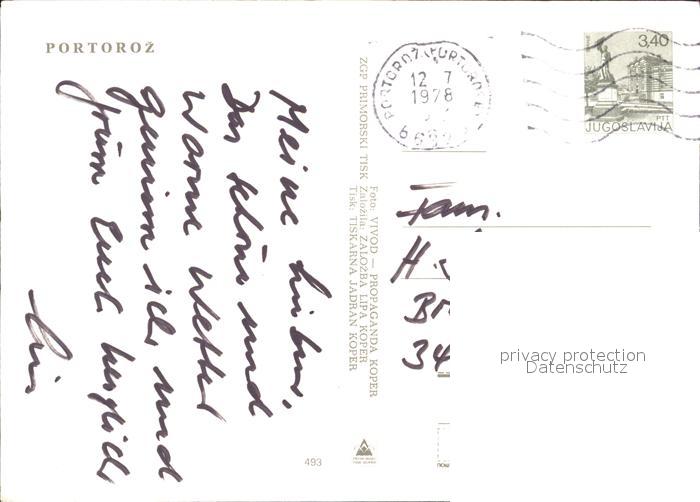 PORTOROŽ
Meine Lieben.
Das schöne und
warme Wetter
geniesse ich und
grüsse Euch herzlich
ZGP PRIMORSKI TISK
Foto: VIVOD — PROPAGANDA KOPER
Založila: ZALOŽBA LIPA KOPER
Tisk: TISKARNA JADRAN KOPER
493
PORTOROŽ
12 7
1978
3,40
PTT
JUGOSLAVIJA
Fam.
H
34
privacy protection
Datenschutz